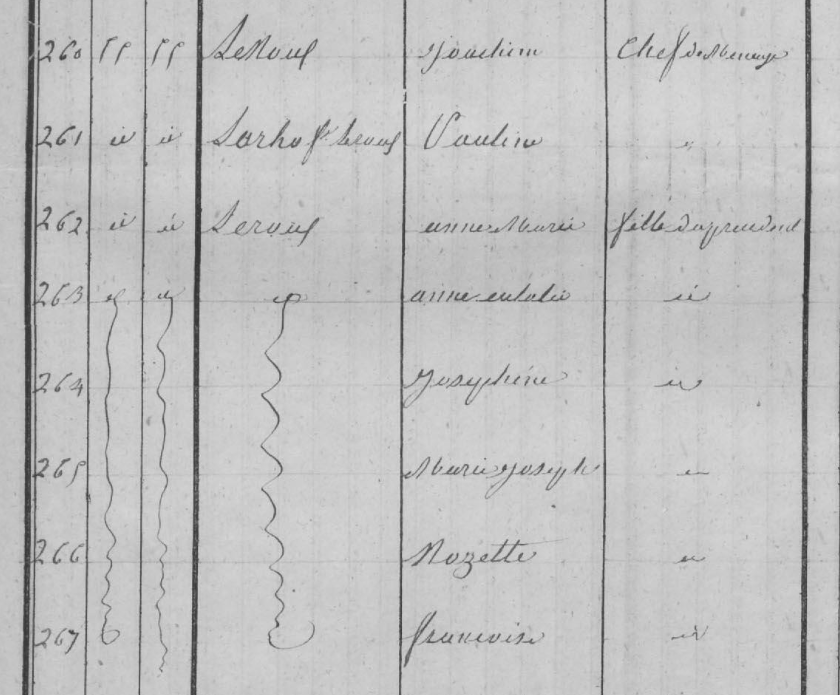 260 55 55 LeRoux Joachim Chef de Menage
261 id id fe Leroux Pauline id
262 id id Leroux anne Marie fille du precedent
263 id id id anne eulalie id
264 Josephine id
265 Marie Joseph id
266 Rozette id
267 francoise id